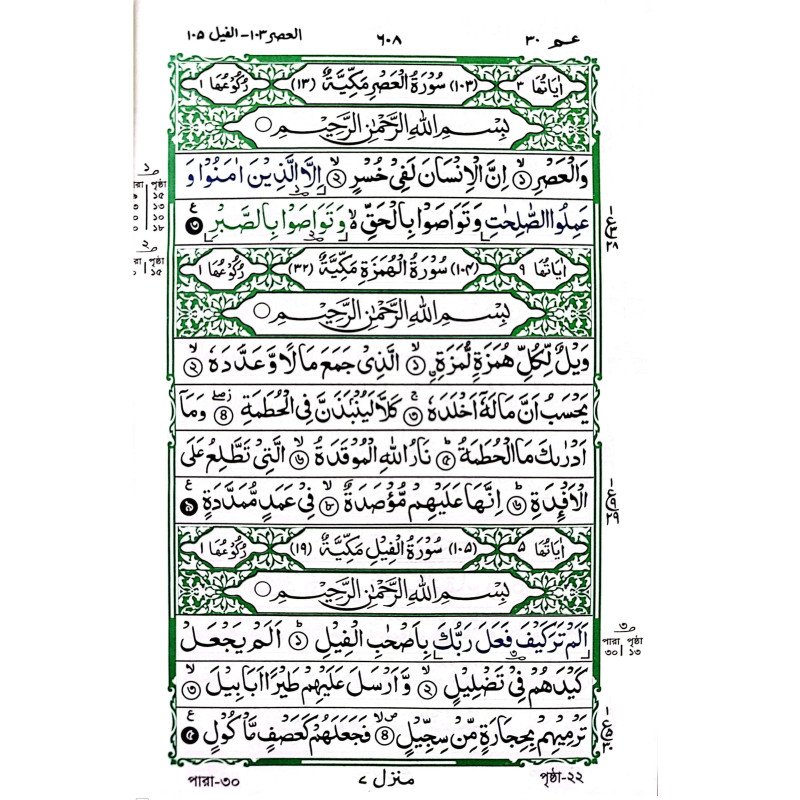 العصر ١٠٣- الفيل ١٠٥ ٦٠٨ عم ٣٠
اٰيَاتُهَا ٣ (١٠٣) سُوْرَةُ الْعَصْرِ مَكِّيَّةٌ (١٣) رُكُوْعُهَا ١
بِسْمِ اللهِ الرَّحْمٰنِ الرَّحِيْمِ ○
وَالْعَصْرِ ۙ﴿১﴾ اِنَّ الْاِنْسَانَ لَفِيْ خُسْرٍ ۙ﴿২﴾ اِلَّا الَّذِيْنَ اٰمَنُوْا وَ
عَمِلُوا الصّٰلِحٰتِ وَتَوَاصَوْا بِالْحَقِّ ۙ وَتَوَاصَوْا بِالصَّبْرِ ﴿৩﴾ ع
اٰيَاتُهَا ٩ (١٠٤) سُوْرَةُ الْهُمَزَةِ مَكِّيَّةٌ (٣٢) رُكُوْعُهَا ١
بِسْمِ اللهِ الرَّحْمٰنِ الرَّحِيْمِ ○
وَيْلٌ لِّكُلِّ هُمَزَةٍ لُّمَزَةِ ۙ﴿১﴾ الَّذِيْ جَمَعَ مَالًا وَّعَدَّدَهٗ ۙ﴿২﴾
يَحْسَبُ اَنَّ مَالَهٗٓ اَخْلَدَهٗ ۚ﴿৩﴾ كَلَّا لَيُنْۢبَذَنَّ فِي الْحُطَمَةِ ﴿৪﴾ وَمَآ
اَدْرٰىكَ مَا الْحُطَمَةُ ؕ﴿৫﴾ نَارُ اللهِ الْمُوْقَدَةُ ۙ﴿৬﴾ الَّتِيْ تَطَّلِعُ عَلَى
الْاَفْـِٕدَةِ ؕ﴿৭﴾ اِنَّهَا عَلَيْهِمْ مُّؤْصَدَةٌ ۙ﴿৮﴾ فِيْ عَمَدٍ مُّمَدَّدَةٍ ﴿৯﴾ ع
اٰيَاتُهَا ٥ (١٠٥) سُوْرَةُ الْفِيْلِ مَكِّيَّةٌ (١٩) رُكُوْعُهَا ١
بِسْمِ اللهِ الرَّحْمٰنِ الرَّحِيْمِ ○
اَلَمْ تَرَ كَيْفَ فَعَلَ رَبُّكَ بِاَصْحٰبِ الْفِيْلِ ؕ﴿১﴾ اَلَمْ يَجْعَلْ
كَيْدَهُمْ فِيْ تَضْلِيْلٍ ۙ﴿২﴾ وَّاَرْسَلَ عَلَيْهِمْ طَيْرًا اَبَابِيْلَ ۙ﴿৩﴾
تَرْمِيْهِمْ بِحِجَارَةٍ مِّنْ سِجِّيْلٍ ﴿৪﴾ فَجَعَلَهُمْ كَعَصْفٍ مَّاْكُوْلٍ ﴿৫﴾ ع
৩
পারা পৃষ্ঠা
৩০ ১৩
পারা-৩০ منزل ٧ পৃষ্ঠা-২২